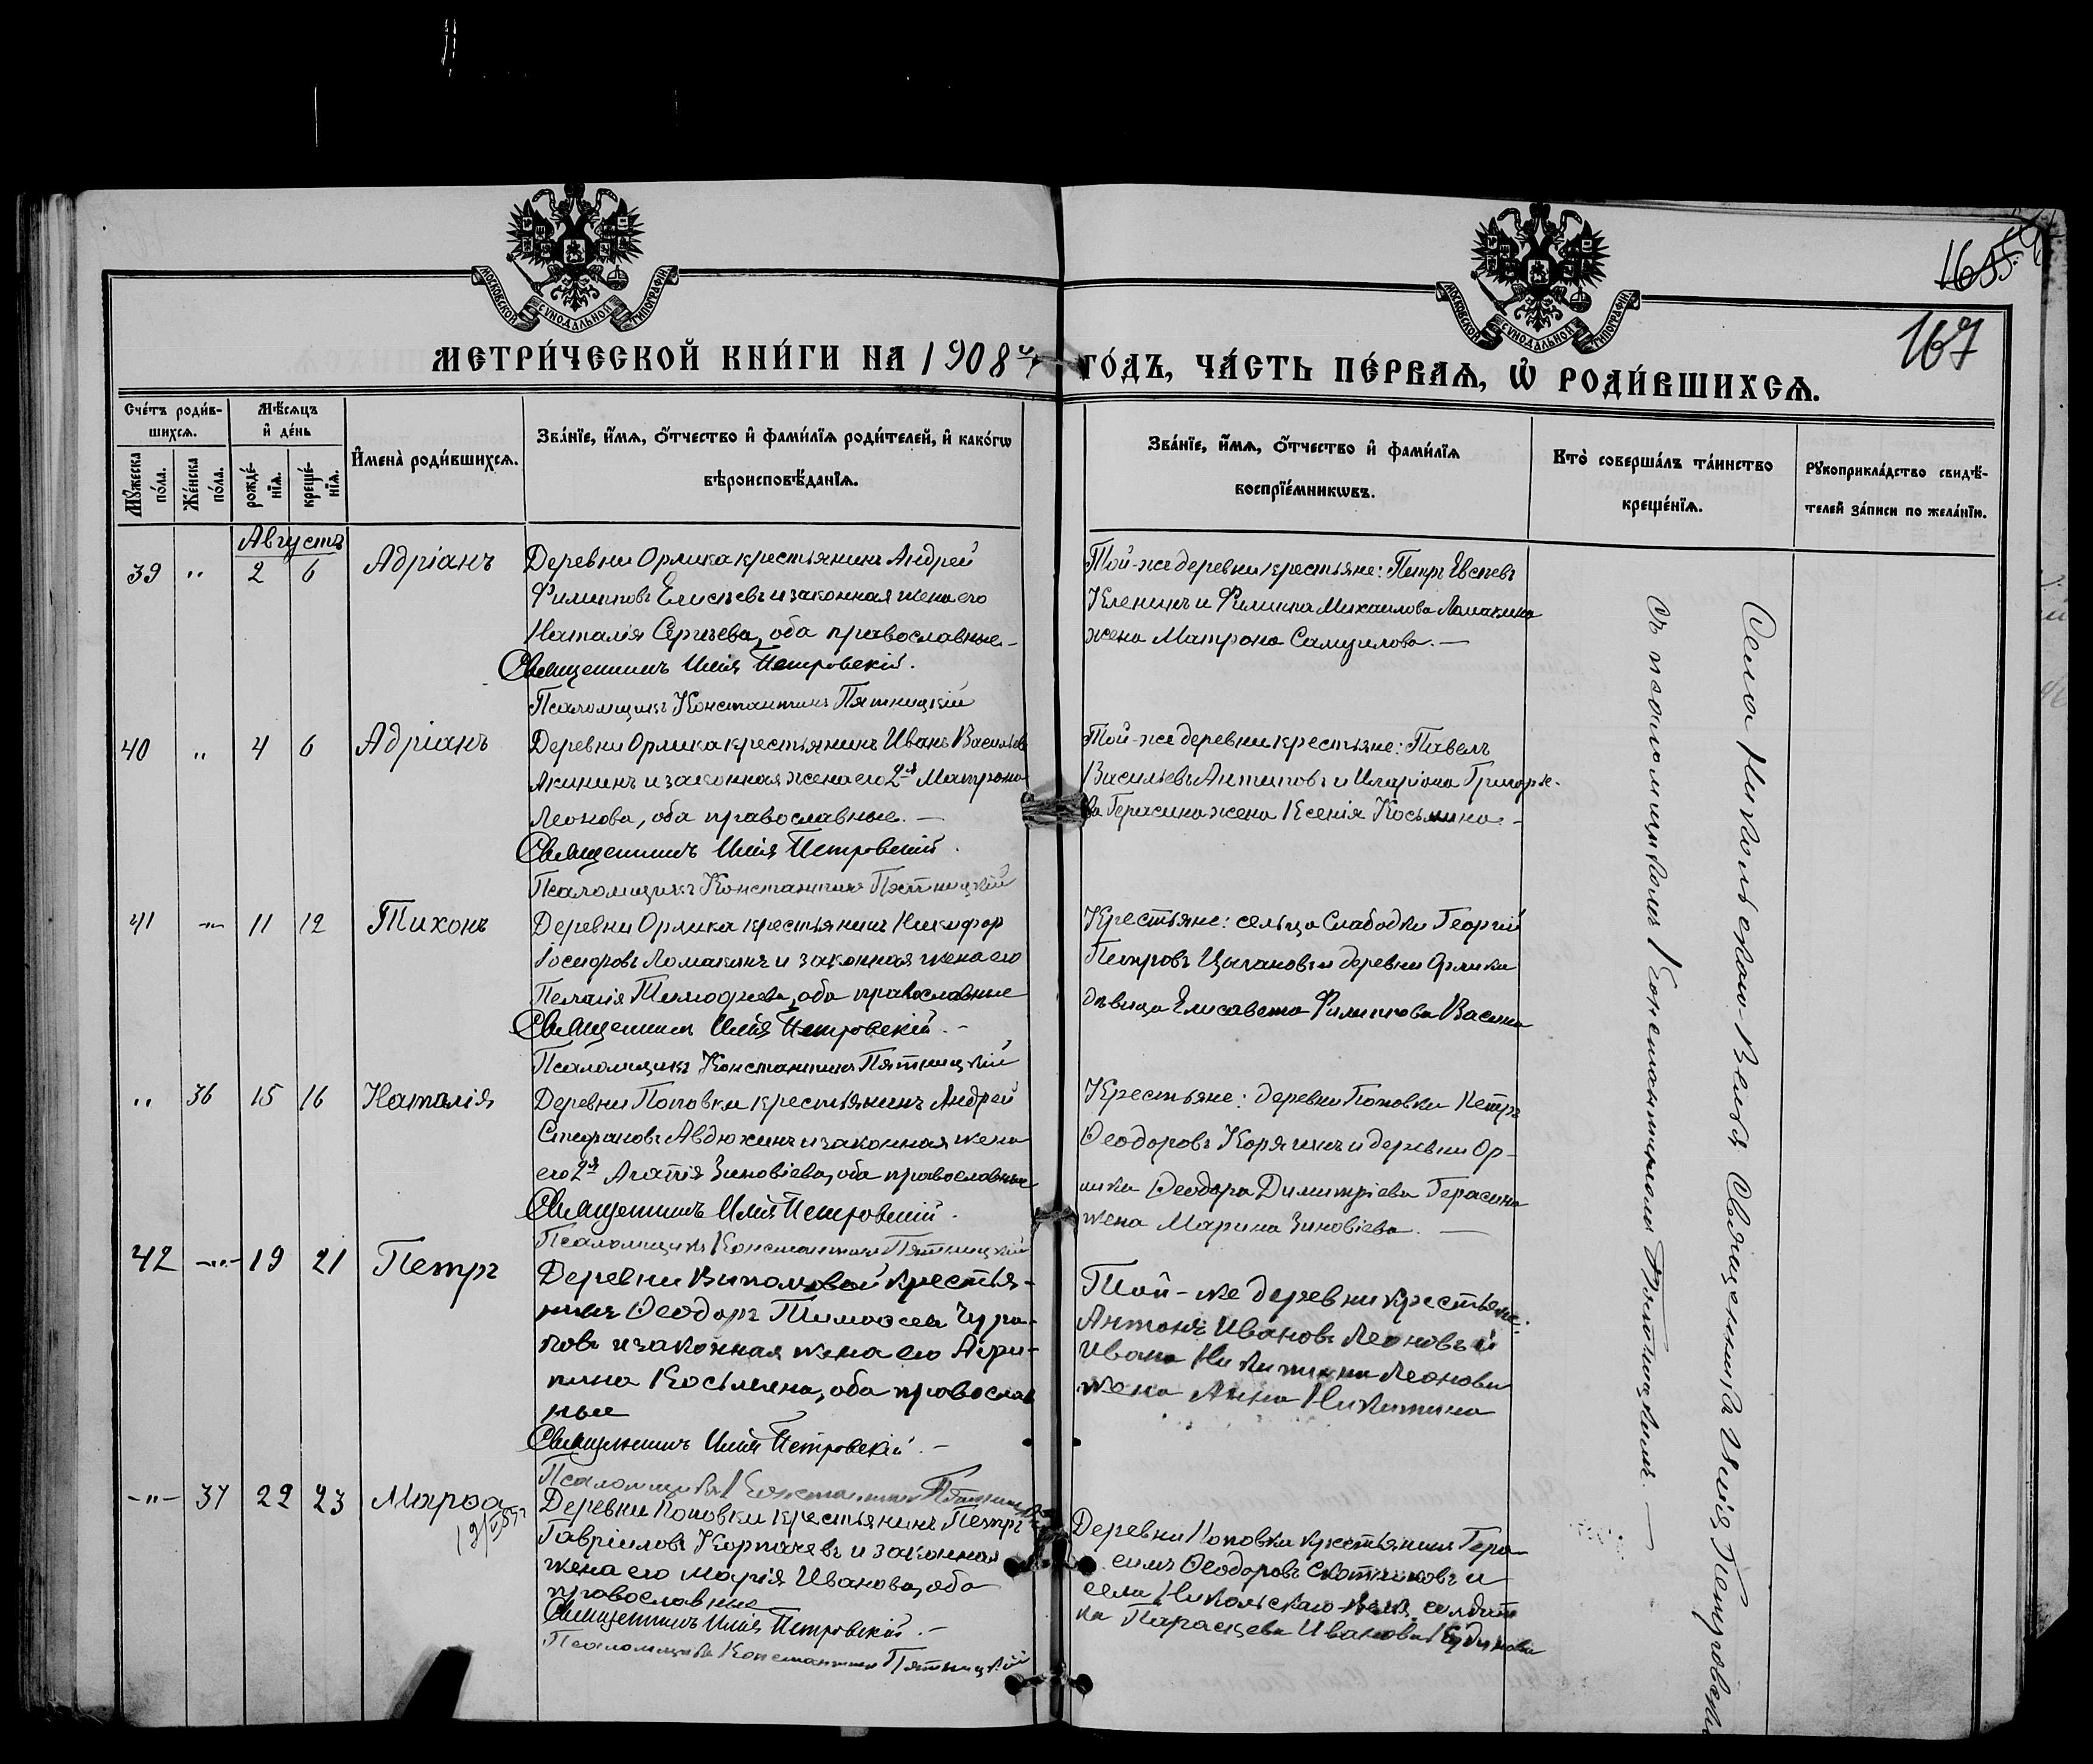 1655
167
МОСКОВСКОЙ СѴНОДАЛЬНОЙ ТИПОГРАФІИ.
МОСКОВСКОЙ СѴНОДАЛЬНОЙ ТИПОГРАФІИ.
МЕТРИ́ЧЕСКОЙ КНИ́ГИ НА 1908й ГО́ДЪ, ЧА́СТЬ ПЕ́РВАѦ, Ѡ РОДИ́ВШИХСѦ.
Счéтъ роди́в-
шихсѧ.
Мѣ́сѧцъ
и дéнь
Мꙋ́жеска
по́ла.
Жéнска
по́ла.
рождé-
нїѧ.
крещé-
нїѧ.
Имена̀ роди́вшихсѧ.
Зва́нїе, и́мѧ, о́тчество и фами́лїѧ роди́телей, и како́гѡ
вѣроисповѣ́данїѧ.
Зва́нїе, и́мѧ, о́тчество и фами́лїѧ
воспрїéмникѡвъ.
Кто̀ соверша́лъ та́инство
крещéнїѧ.
Рꙋкоприкла́дство свидѣ́-
телей за́писи по жела́нїю.
Августъ
39 " 2 6 Адріанъ
Деревни Орлика крестьянинъ Андрей
Филиповъ Елисѣевъ и законная жена его
Наталія Сергѣева, оба православные.-
Священникъ Илія Петровскій.
Псаломщикъ Константинъ Пятницкій
Той-же деревни крестьяне: Петръ Евсѣевъ
и Филиппа Михаилова Ломакина
жена Матрона Самуилова. —
40 " 4 6 Адріанъ
Деревни Орлика крестьянинъ Иванъ Васильевъ
Акининъ и законная жена его 2я Матрона
Леонова, оба православные. —
Священникъ Илія Петровскій.
Псаломщикъ Константинъ Пятницкій
Той-же деревни крестьяне: Павелъ
Васильевъ Антиповъ и Иларіона Григорье-
ва Герасина жена Ксенія Косьмина. -
41 -"- 11 12 Тихонъ
Деревни Орлика крестьянинъ Никифор
Іосифовъ Ломакинъ и законная жена его
Пелагія Тимофеева, оба православные
Священникъ Илія Петровскій. -
Псаломщикъ Константинъ Пятницкій
Крестьяне: сельца Слабодки Георгій
Петровъ Цыгановъ и деревни Орлика
дѣвица Елисавета Филиппова Васина
" 36 15 16 Наталія
Деревни Поповки крестьянинъ Андрей
Стефановъ Авдюхинъ и законная жена
его 2я Агапія Зиновіева, оба православные
Священникъ Илія Петровскій.
Псаломщикъ Константинъ Пятницкій
Крестьяне: деревни Поповки Петръ
Ѳеодоровъ Корягинъ и деревни Ор-
лика Ѳеодора Димитріева Герасина
жена Марина Зиновіева. —
42 -"- 19 21 Петръ
Деревни крестья-
нинъ Ѳеодоръ Тимоѳеевъ
и законная жена его Агри-
пина Косьмина, оба православ
ные
Священникъ Илія Петровскій. -
Псаломщикъ Константинъ
Той-же деревни крестьяне:
Антонъ Ивановъ Леоновъ и
Ивана Никитина Леонова
жена Анна Никитина
-"- 37 22 23 Марѳа
Деревни Поповки крестьянинъ Петръ
Гавріиловъ Корпачевъ и законная
жена его Марія Иванова, оба
православные
Священникъ Илія Петровскій. -
Псаломщикъ Константинъ Пятницкій
Деревни Поповки крестьянинъ Гера-
симъ Ѳеодоровъ и
села Никольскаго солдат
ка Параскева Иванова
Села Никольскаго Священникъ Илія Петровскій
съ псаломщикомъ Константиномъ Пятницкимъ. —